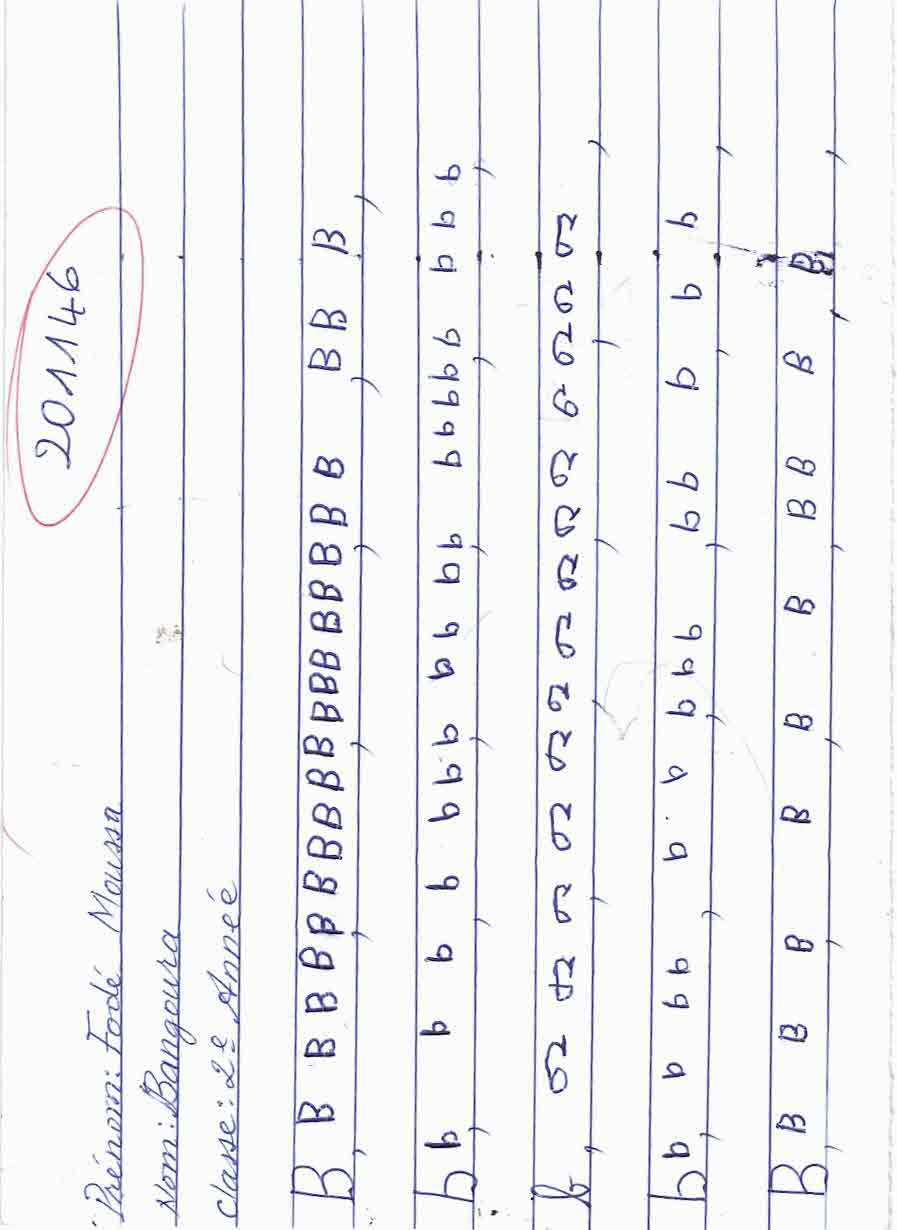 201146
Prénom: Fodé Moussa
Nom: Bangoura
Classe: 2e Année
B B B B B B B B B B B B B B B B B B B B B B
b b b b b b b b b b b b b b b b b b b b
b b b b b b b b b b b b b b b
b b b b b b b b b b b b b b b
B B B B B B B B B B B